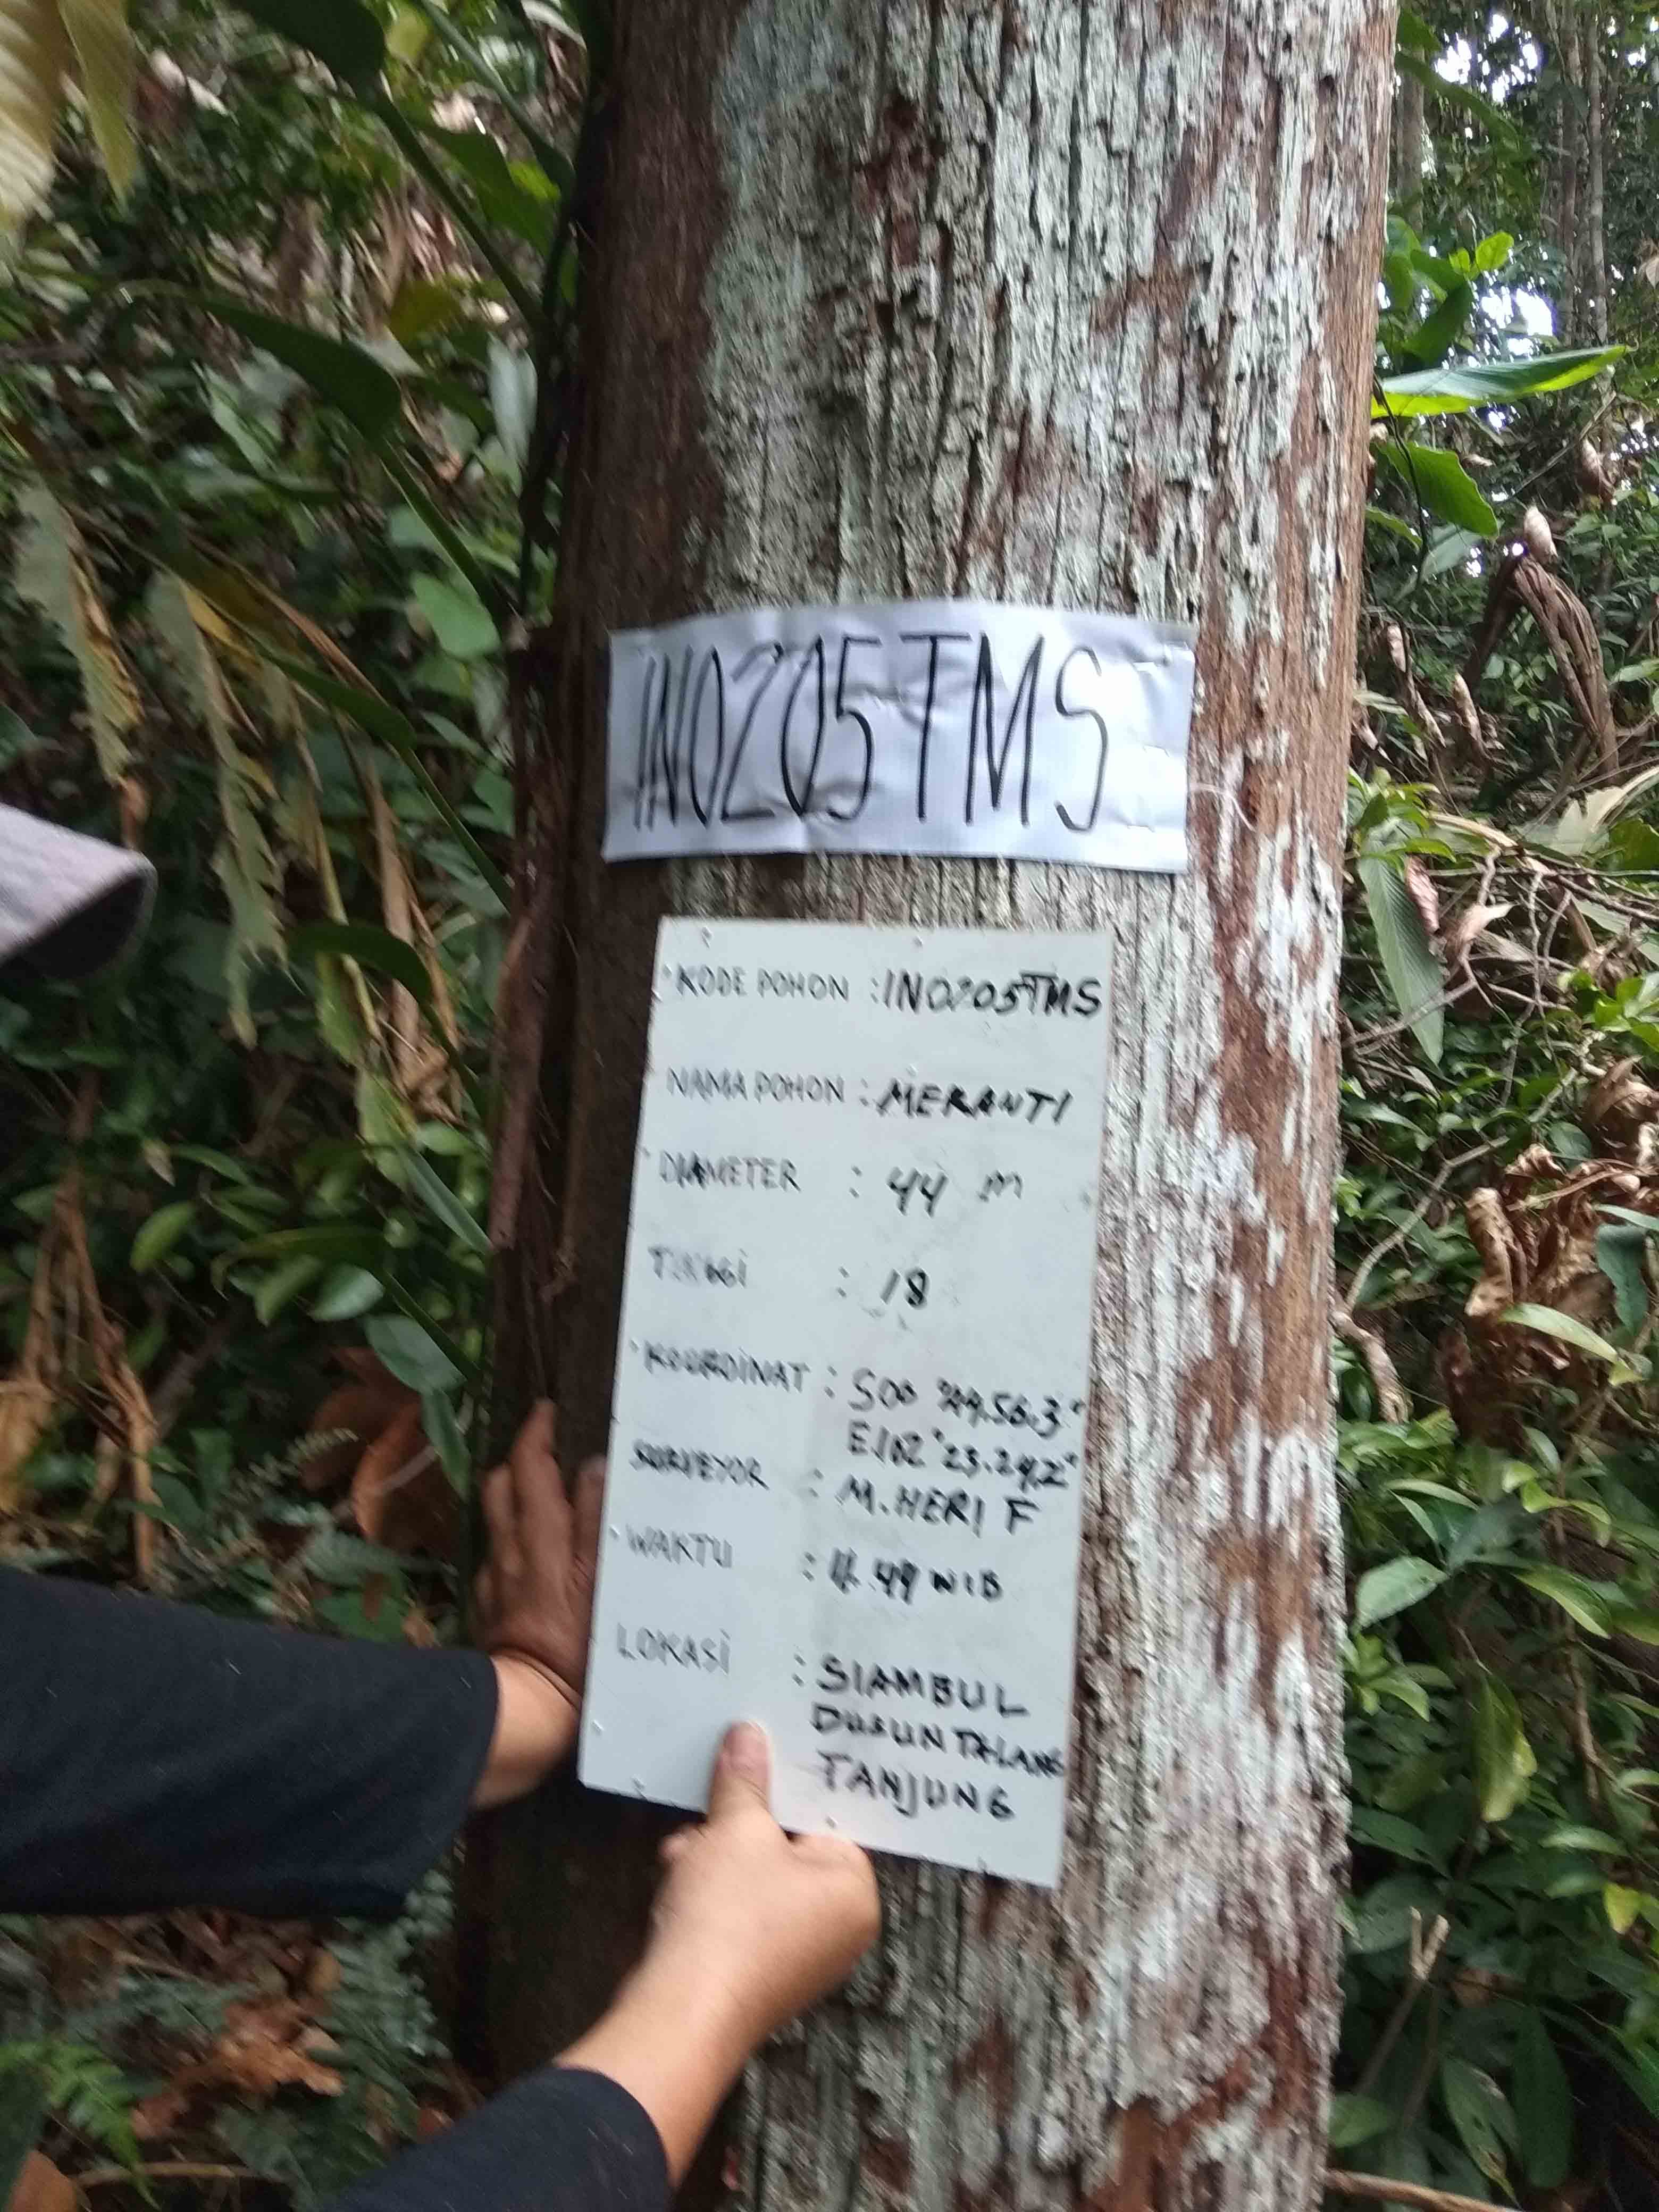 IN0205TMS
KODE POHON : IN0205TMS
NAMA POHON : MERANTI
DIAMETER : 44 m
TINGGI : 18
KOORDINAT :
E.102° 23.24,2"
SURVEYOR : M.HERI F
WAKTU : 49 WIB
LOKASI : SIAMBUL
DUSUN TALANG
TANJUNG